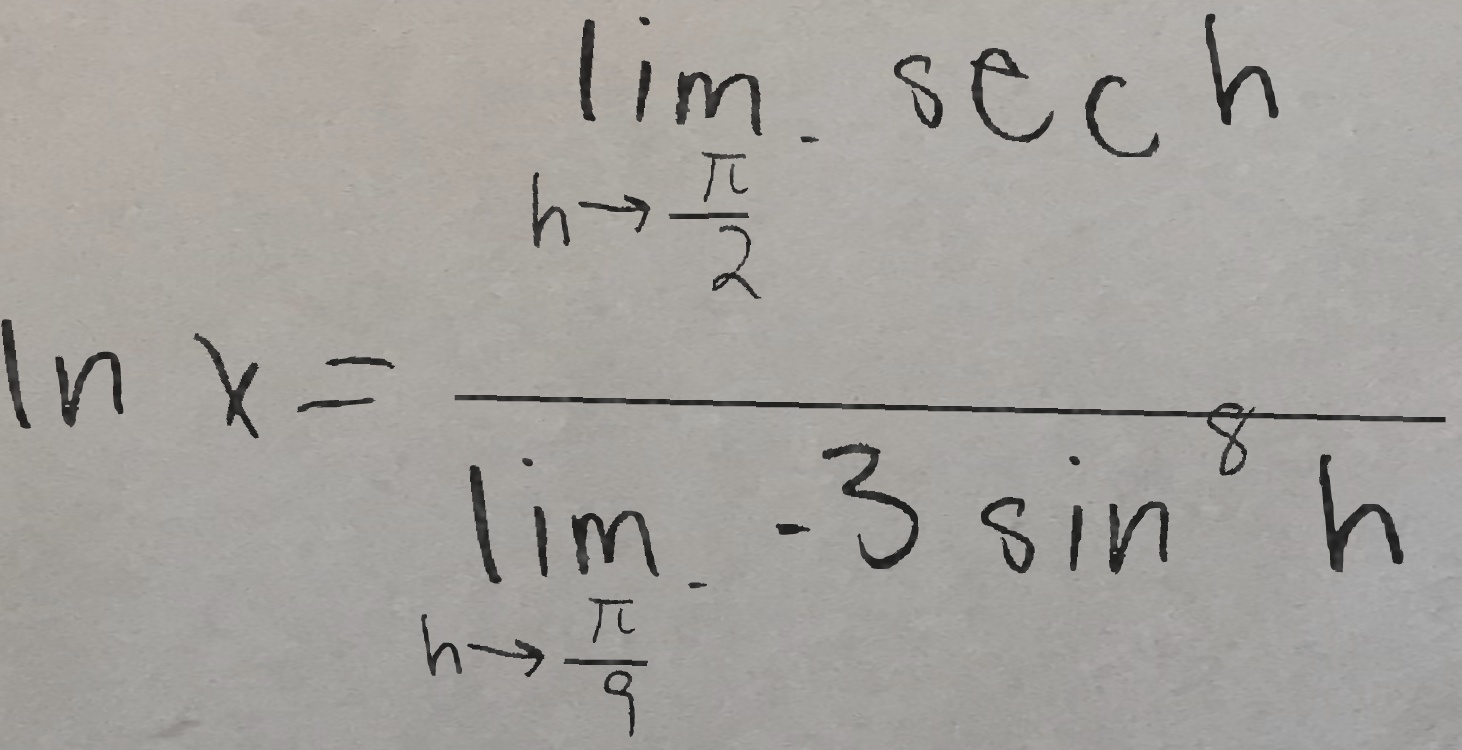 ln x = \frac{\lim_{h \to \frac{\pi}{2}^-} \sec h}{\lim_{h \to \frac{\pi}{9}^-} -3 \sin^8 h}